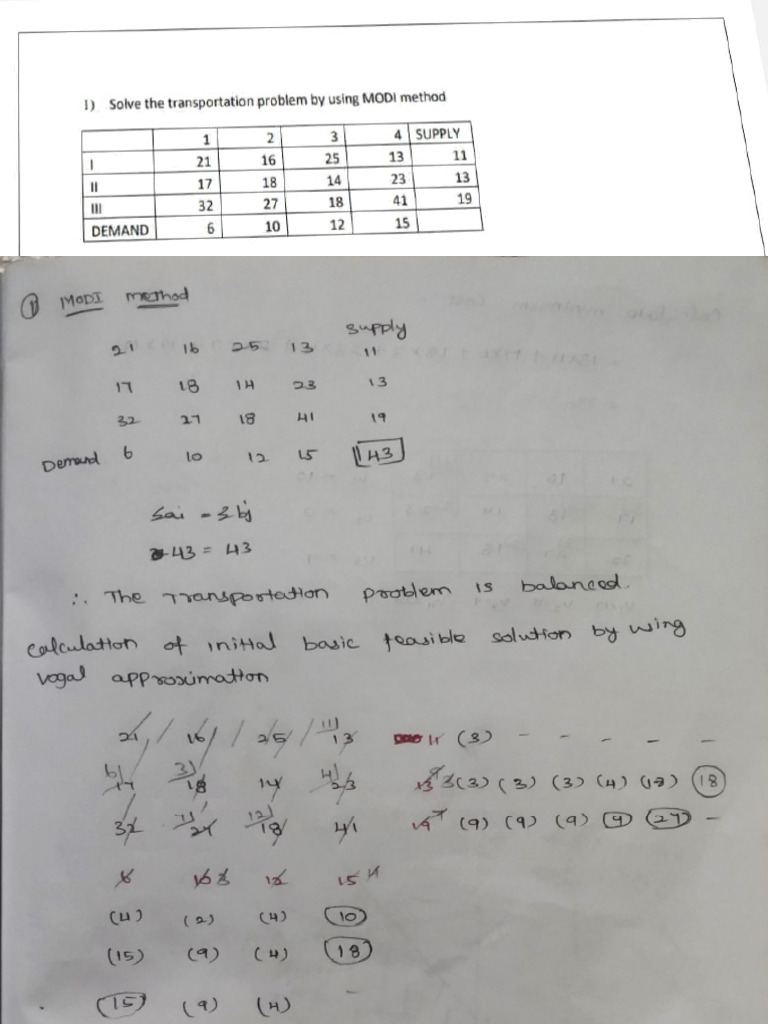 1) Solve the transportation problem by using MODI method
1 2 3 4 SUPPLY
I 21 16 25 13 11
II 17 18 14 23 13
III 32 27 18 41 19
DEMAND 6 10 12 15
1 MODI method
supply
21 16 25 13 11
17 18 14 23 13
32 27 18 41 19
Demand 6 10 12 15 43
Σai = Σbj
43 = 43
∴ The Transportation problem is balanced.
calculation of initial basic feasible solution by using
vogal approximation
21 16 25 11 13 11 (3) - - - - -
6 17 3 18 14 4 23 13 9 3 (3) (3) (3) (4) (18) 18
32 7 27 12 18 41 19 7 (9) (9) (9) 9 27 -
6 10 3 12 15 4
(4) (2) (4) 10
(15) (9) (4) 18
15 (9) (4) -